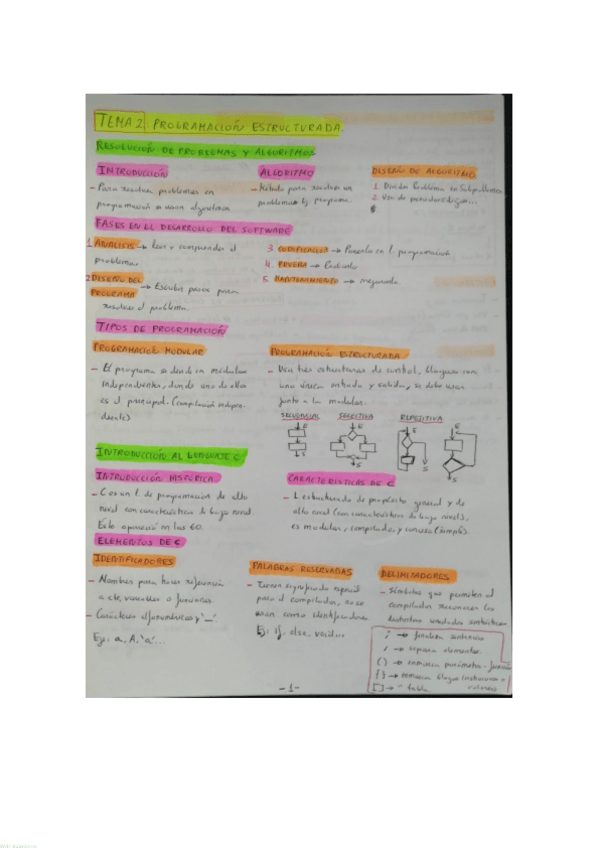 TEMA 2: PROGRAMACIÓN ESTRUCTURADA.
RESOLUCIÓN DE PROBLEMAS Y ALGORITMOS
INTRODUCCIÓN
- Para resolver problemas en
programación se usan algoritmos
ALGORITMO
- Método para resolver un
problema. Ej. programa.
DISEÑO DE ALGORITMO
1. Dividir Problema en Subproblemas
2. Uso de pseudocódigo...
FASES EN EL DESARROLLO DEL SOFTWARE
1. ANÁLISIS → Leer y comprender el
problema.
2. DISEÑO DEL
PROGRAMA → Escribir pasos para
resolver el problema.
3. CODIFICACIÓN → Pasarlo a l. programación
4. PRUEBA →
5. MANTENIMIENTO → mejorando
TIPOS DE PROGRAMACIÓN
PROGRAMACIÓN MODULAR
- El programa se divide en módulos
independientes, donde uno de ellos
es el principal. (compilación indepen-
diente)
PROGRAMACIÓN ESTRUCTURADA
- Usa tres estructuras de control, bloques con
una única entrada y salida, se debe usar
junto a la modular.
SECUENCIAL SELECTIVA REPETITIVA
E E E E
S S S S
INTRODUCCIÓN AL LENGUAJE C
INTRODUCCIÓN HISTÓRICA
- C es un l. de programación de alto
nivel con características de bajo nivel.
Este apareció en los 60.
CARACTERÍSTICAS DE C
- L estructurado de propósito general y de
alto nivel (con características de bajo nivel),
es modular, compilado, y conciso (simple).
ELEMENTOS DE C
IDENTIFICADORES
- Nombres para hacer referencia
a cte, variables o funciones.
- Carácteres alfanuméricos y '_'.
Ej. a, A, 'a'...
PALABRAS RESERVADAS
- Tienen significado especial
para el compilador, no se
usan como identificadores
Ej: if, else, void...
DELIMITADORES
- Símbolos que permiten al
compilador reconocer las
distintas unidades sintácticas
; → finaliza sentencias
, → separa elementos.
( ) → enmarca parámetros - función
{ } → enmarca bloque instrucciones o
valores
[ ] → " tabla
- 1 -